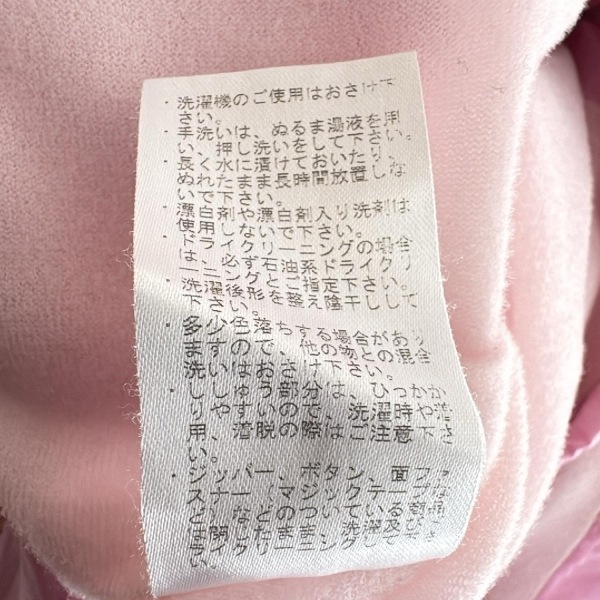 ・洗濯機のご使用はおさけ下
さい。
・手洗いは、ぬるま湯液を用
い、押し洗いをして下さい。
・長く水に漬けておいたり、
ぬれたまま長時間放置しな
いで下さい。
・漂白剤や漂白剤入り洗剤は
使用しないで下さい。
・ドライクリーニングの場合
は、必ず石油系ドライクリ
ーニングとご指定下さい。
・洗濯後形を整え陰干しして
下さい。
・多少色落ちする場合があり
ますので、他の物との混合
洗いはおさけ下さい。
・ししゅう部分は、ひっかか
りやすいので、洗濯時や着
用、着脱の際はご注意下さ
・ジッパー、ボタン、面ファ
スナー(マジックテープ